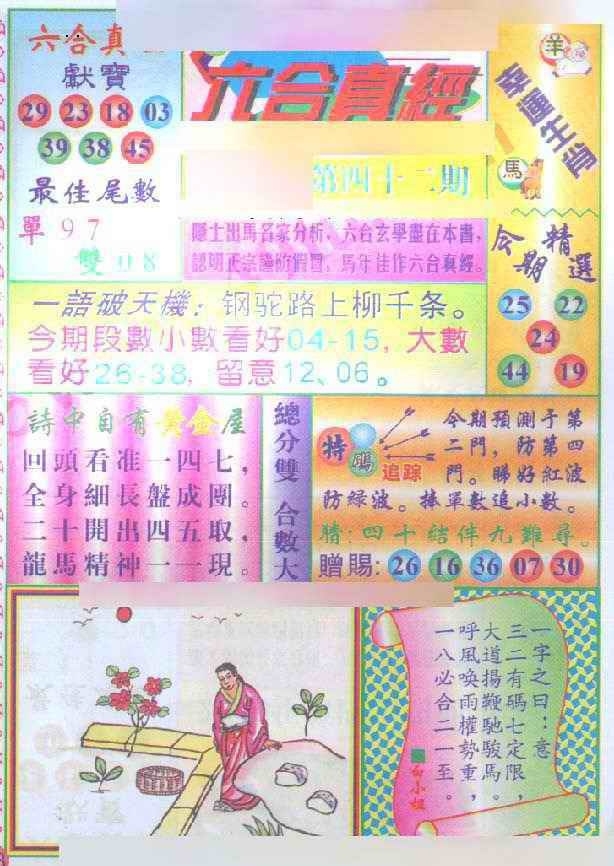 六合真
獻寶
29 23 18 03
39 38 45
最佳尾數
單 9 7
雙 0 8
六合真經
第四十二期
隱士出馬名家分析，六合玄學盡在本書，
認明正宗謹防假冒，馬年佳作六合真經。
羊
幸運生肖
馬
今期精選
25 22
24
44 19
一語破天機：钢驼路上柳千条。
今期段數小數看好04-15，大數
看好26-38，留意12、06。
詩中自有黃金屋
回頭看准一四七，
全身細長盤成團。
二十開出四五取，
龍馬精神一一現。
總分雙 合數大
特碼
追踪
今期預測予第
二門，防第四
門。睇好紅波
防綠波。捧單數追小數。
猜：四十结伴九難尋。
贈賜：26 16 36 07 30
一字之曰：意
三二有碼七定限，
大道揚鞭馳駿馬。
呼風喚雨權勢重，
一八必合二一至。
白小姐